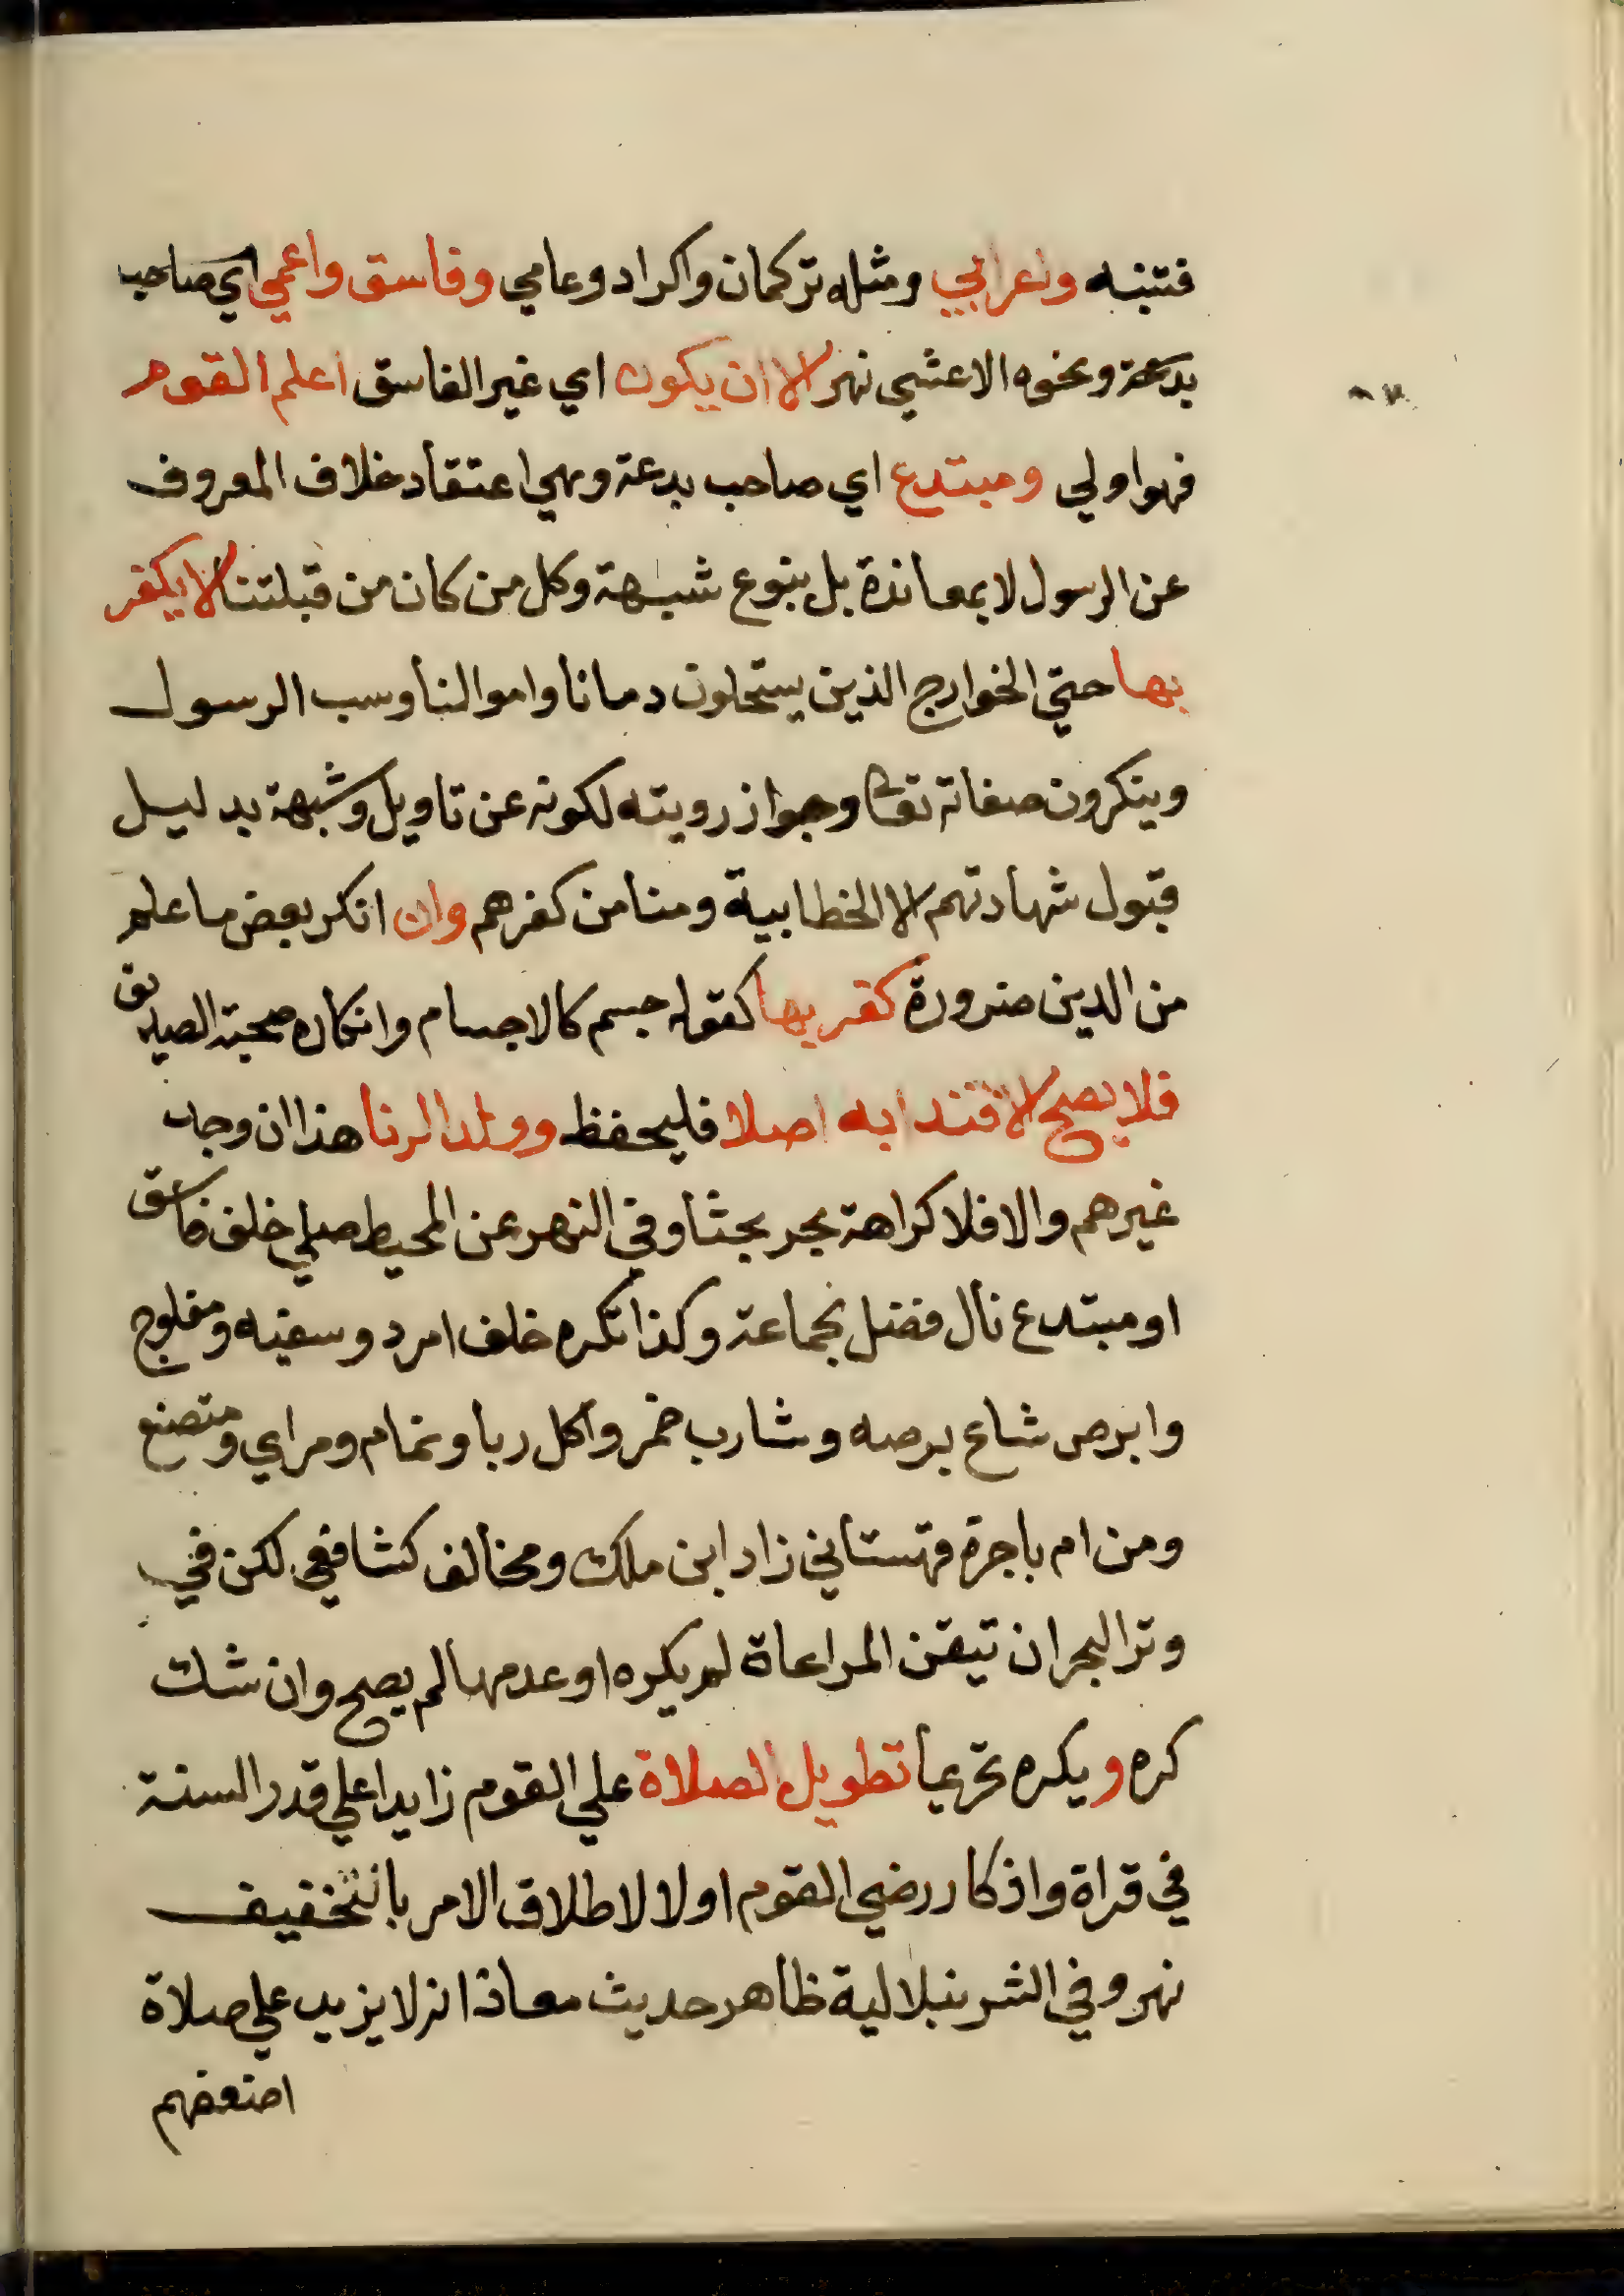 فتنبه واعرابي ومثله تركمان واكراد وعامي وفاسق واعمي اي صاحب
بدعة ونحوه الاعشي نهر الا ان يكون اي غير الفاسق اعلم القوم
فهو اولي ومبتدع اي صاحب بدعة وهي اعتقاد خلاف المعروف
عن الرسول لا بمعاندة بل بنوع شبهة وكل من كان من قبلتنا لا يكفر
بها حتي الخوارج الذين يستحلون دمانا واموالنا وسب الرسول
وينكرون صفاته تعا وجواز رويته لكونه عن تاويل وشبهة بدليل
قبول شهادتهم الا الخطابية ومنا من كفرهم وان انكر بعض ما علم
من الدين ضرورة كفر بها كقوله جسم كالاجسام وانكاره صحبة الصديق
فلا يصح الاقتدا به اصلا فليحفظ وولد الزنا هذا ان وجد
غيرهم والا فلا كراهة بحر بحثا وفي النهر عن المحيط صلي خلف فاسق
او مبتدع نال فضل لجماعة وكذا تكره خلف امرد وسفيه ومفلوج
وابرص شاع برصه وشارب خمر واكل ربا ونمام ومراي ومتصنع
ومن ام باجرة قهستاني زاد ابن ملك ومخالف كشافعي لكن في
وتر البحر ان تيقن المراعاة لم يكره او عدمها لم يصح وان شك
كره ويكره تحريما تطويل الصلاة علي القوم زايدا علي قدر السنة
في قراة واذكار رضي القوم اولا لاطلاق الامر بالتخفيف
نهر وفي الشرنبلالية ظاهر حديث معاذ انه لا يزيد علي صلاة
اضعفهم